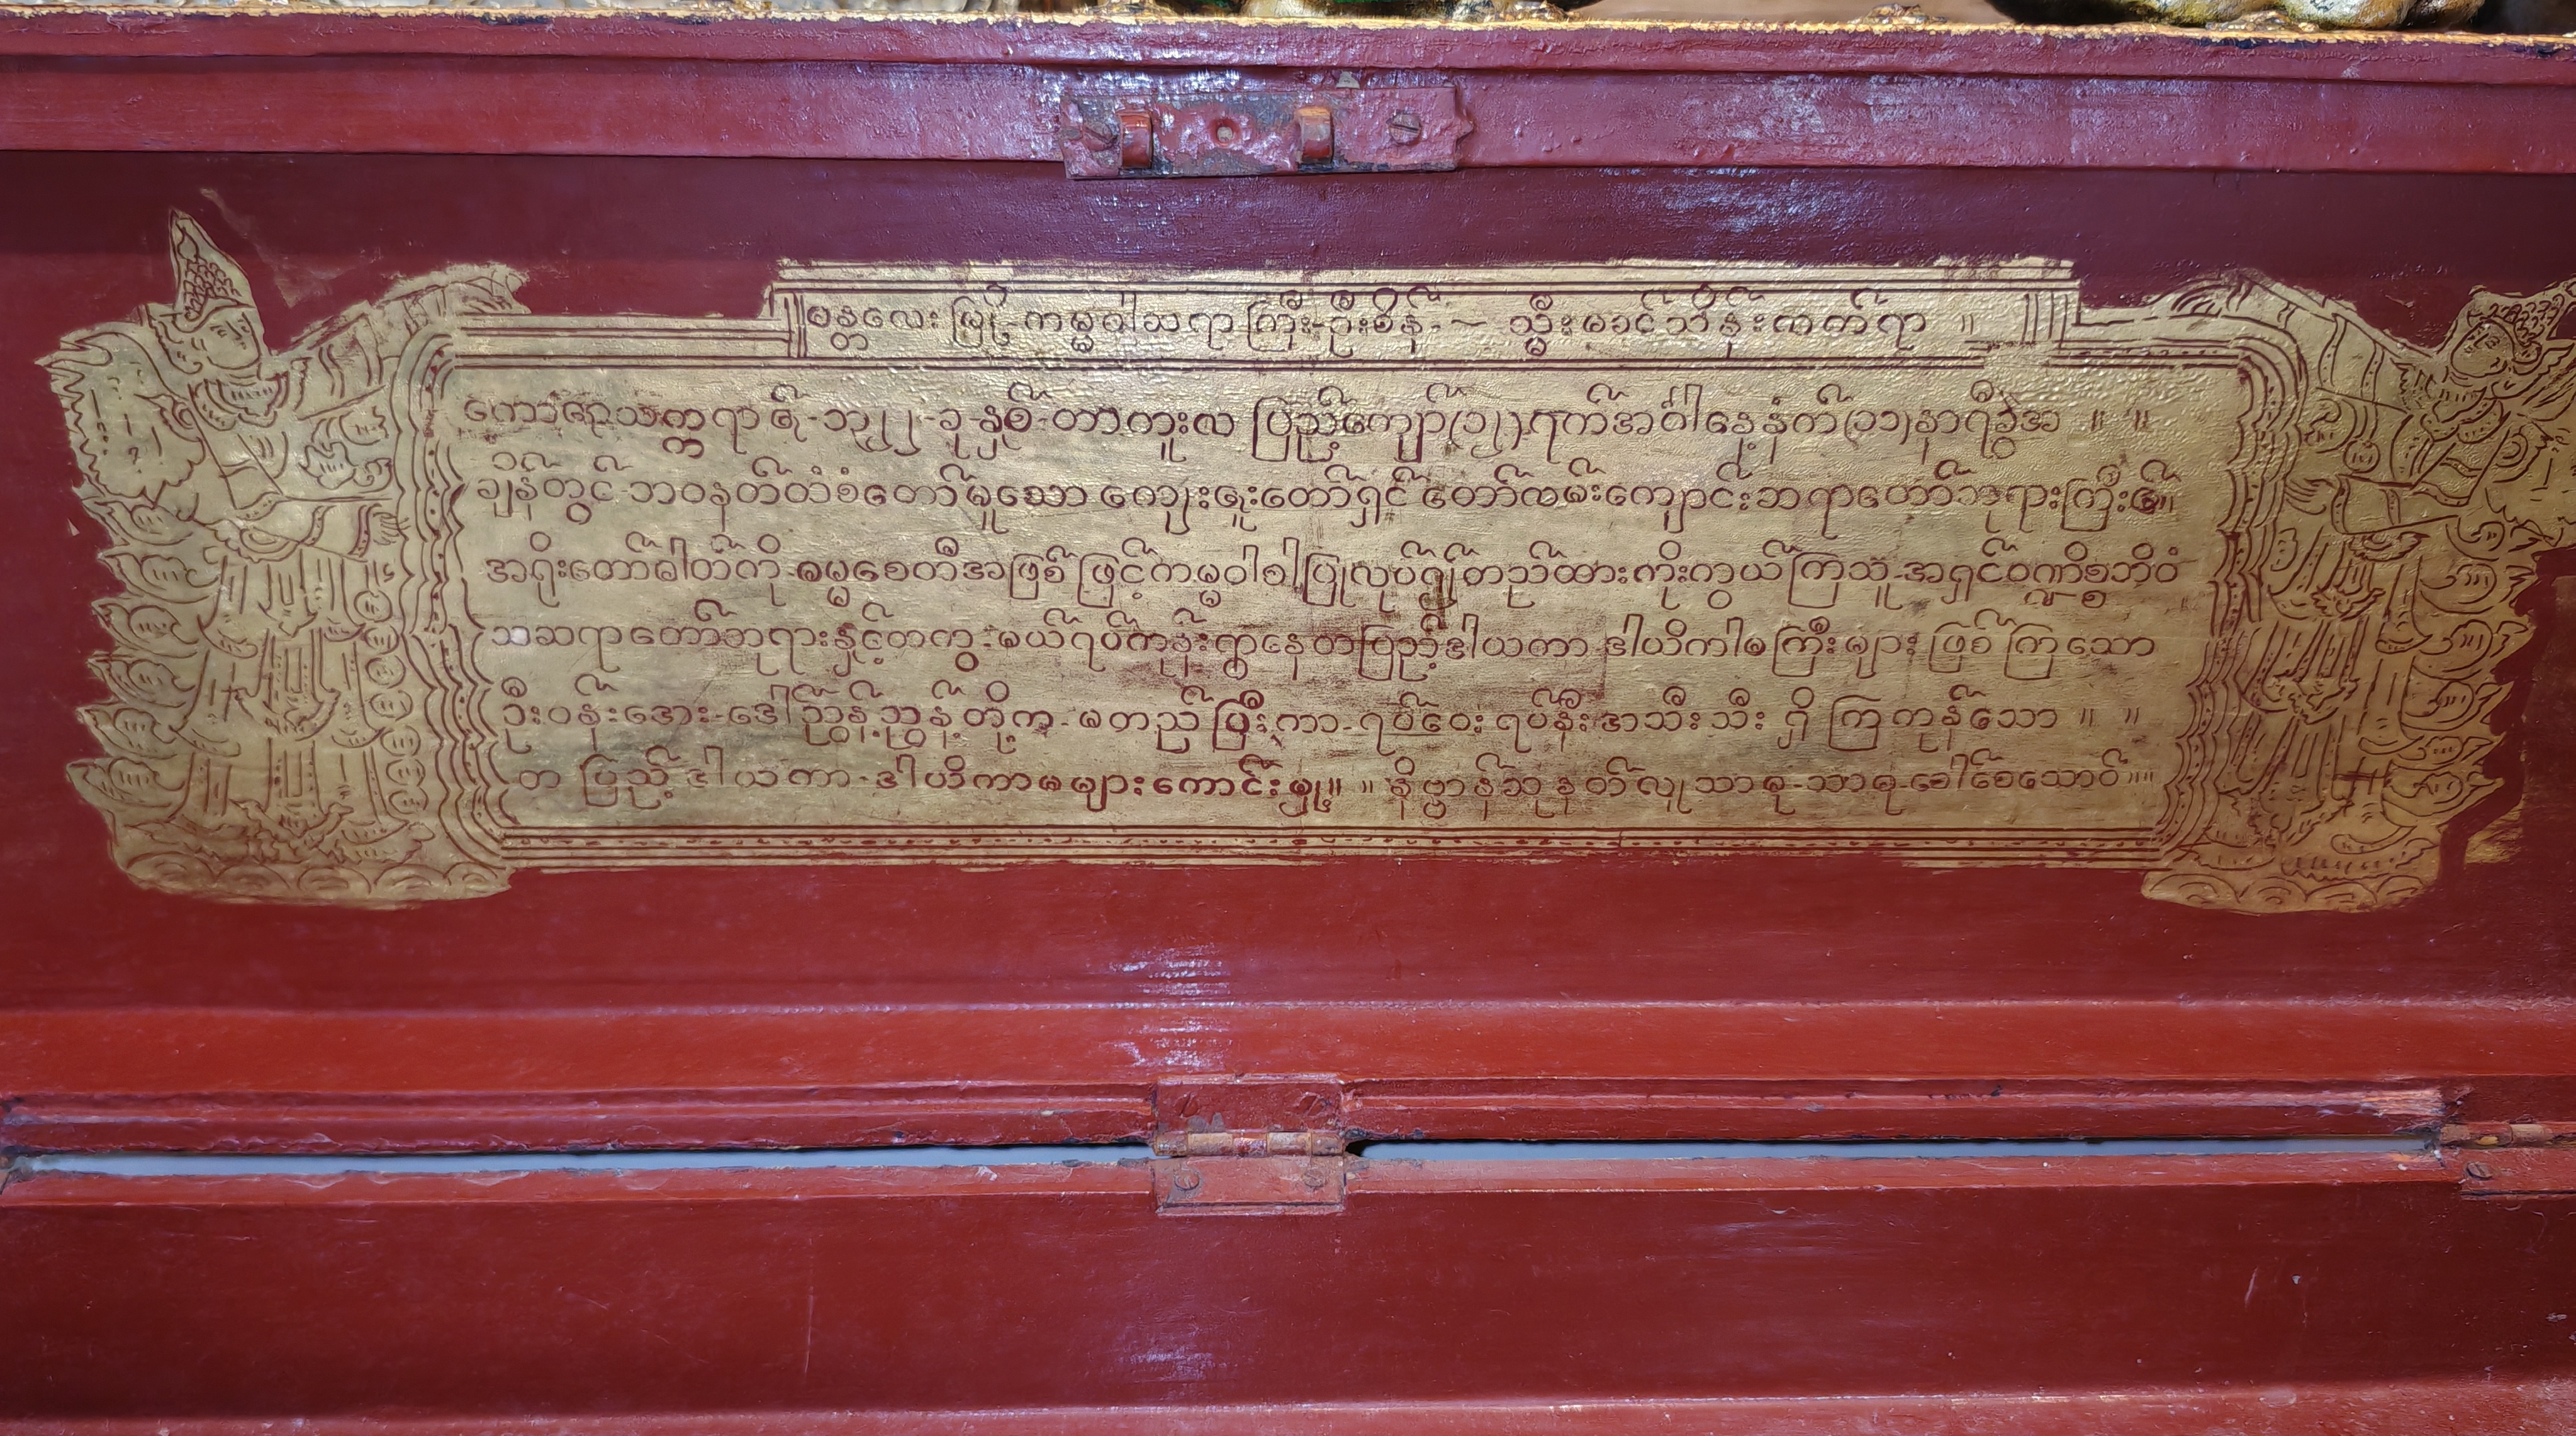 မန္တလေးမြို့-ကမ္မဝါဆရာကြီး-ဦးစိန်-~ သ္မီးမခင်သိန်းကက်ရာ ။
ကောဇာသက္ကရာဇ်-၁၃၂၂-ခု-နှစ်-တာကူးလ ပြည့်ကျော်(၁၂)ရက်အင်္ဂါနေ့နံက်(၁၁)နာရီခွဲအ ။ ။
ချိန်တွင်-ဘဝနတ်ထံစံတော်မူသော ကျေးဇူးတော်ရှင် တော်လမ်းကျောင်းဘရာတော်ဘုရားကြီး၏။
အရိုးတော်ဓါတ်ကို-ဓမ္မစေတီအဖြစ်ဖြင့်ကမ္မဝါစါပြုလုပ်၍တည်ထားကိုးကွယ်ကြသူ-အရှင်ဝဏ္ဏိစ္စဘိဝံ
သဆရာတော်ဘုရားနှင့်တကွ-မယ်ရပ်ကုန်းရွာနေတပြည့်ဒါယကာ-ဒါယိကါမကြီးများ ဖြစ်ကြသော
ဦးဝန်းအေး-ဒေါ်ညွန့်ညွန့်တို့က-မတည်ပြီးကာ-ရပ်ဝေးရပ်နီးအသီးသီး ရှိကြကုန်သော ။ ။
တပြည့်ဒါယကာ-ဒါယိကာမများကောင်းမှု။ ။ နိဗ္ဗာန်ဆုနတ်လူသာဓု-သာဓု-ခေါ်စေသောဝ်။ ။